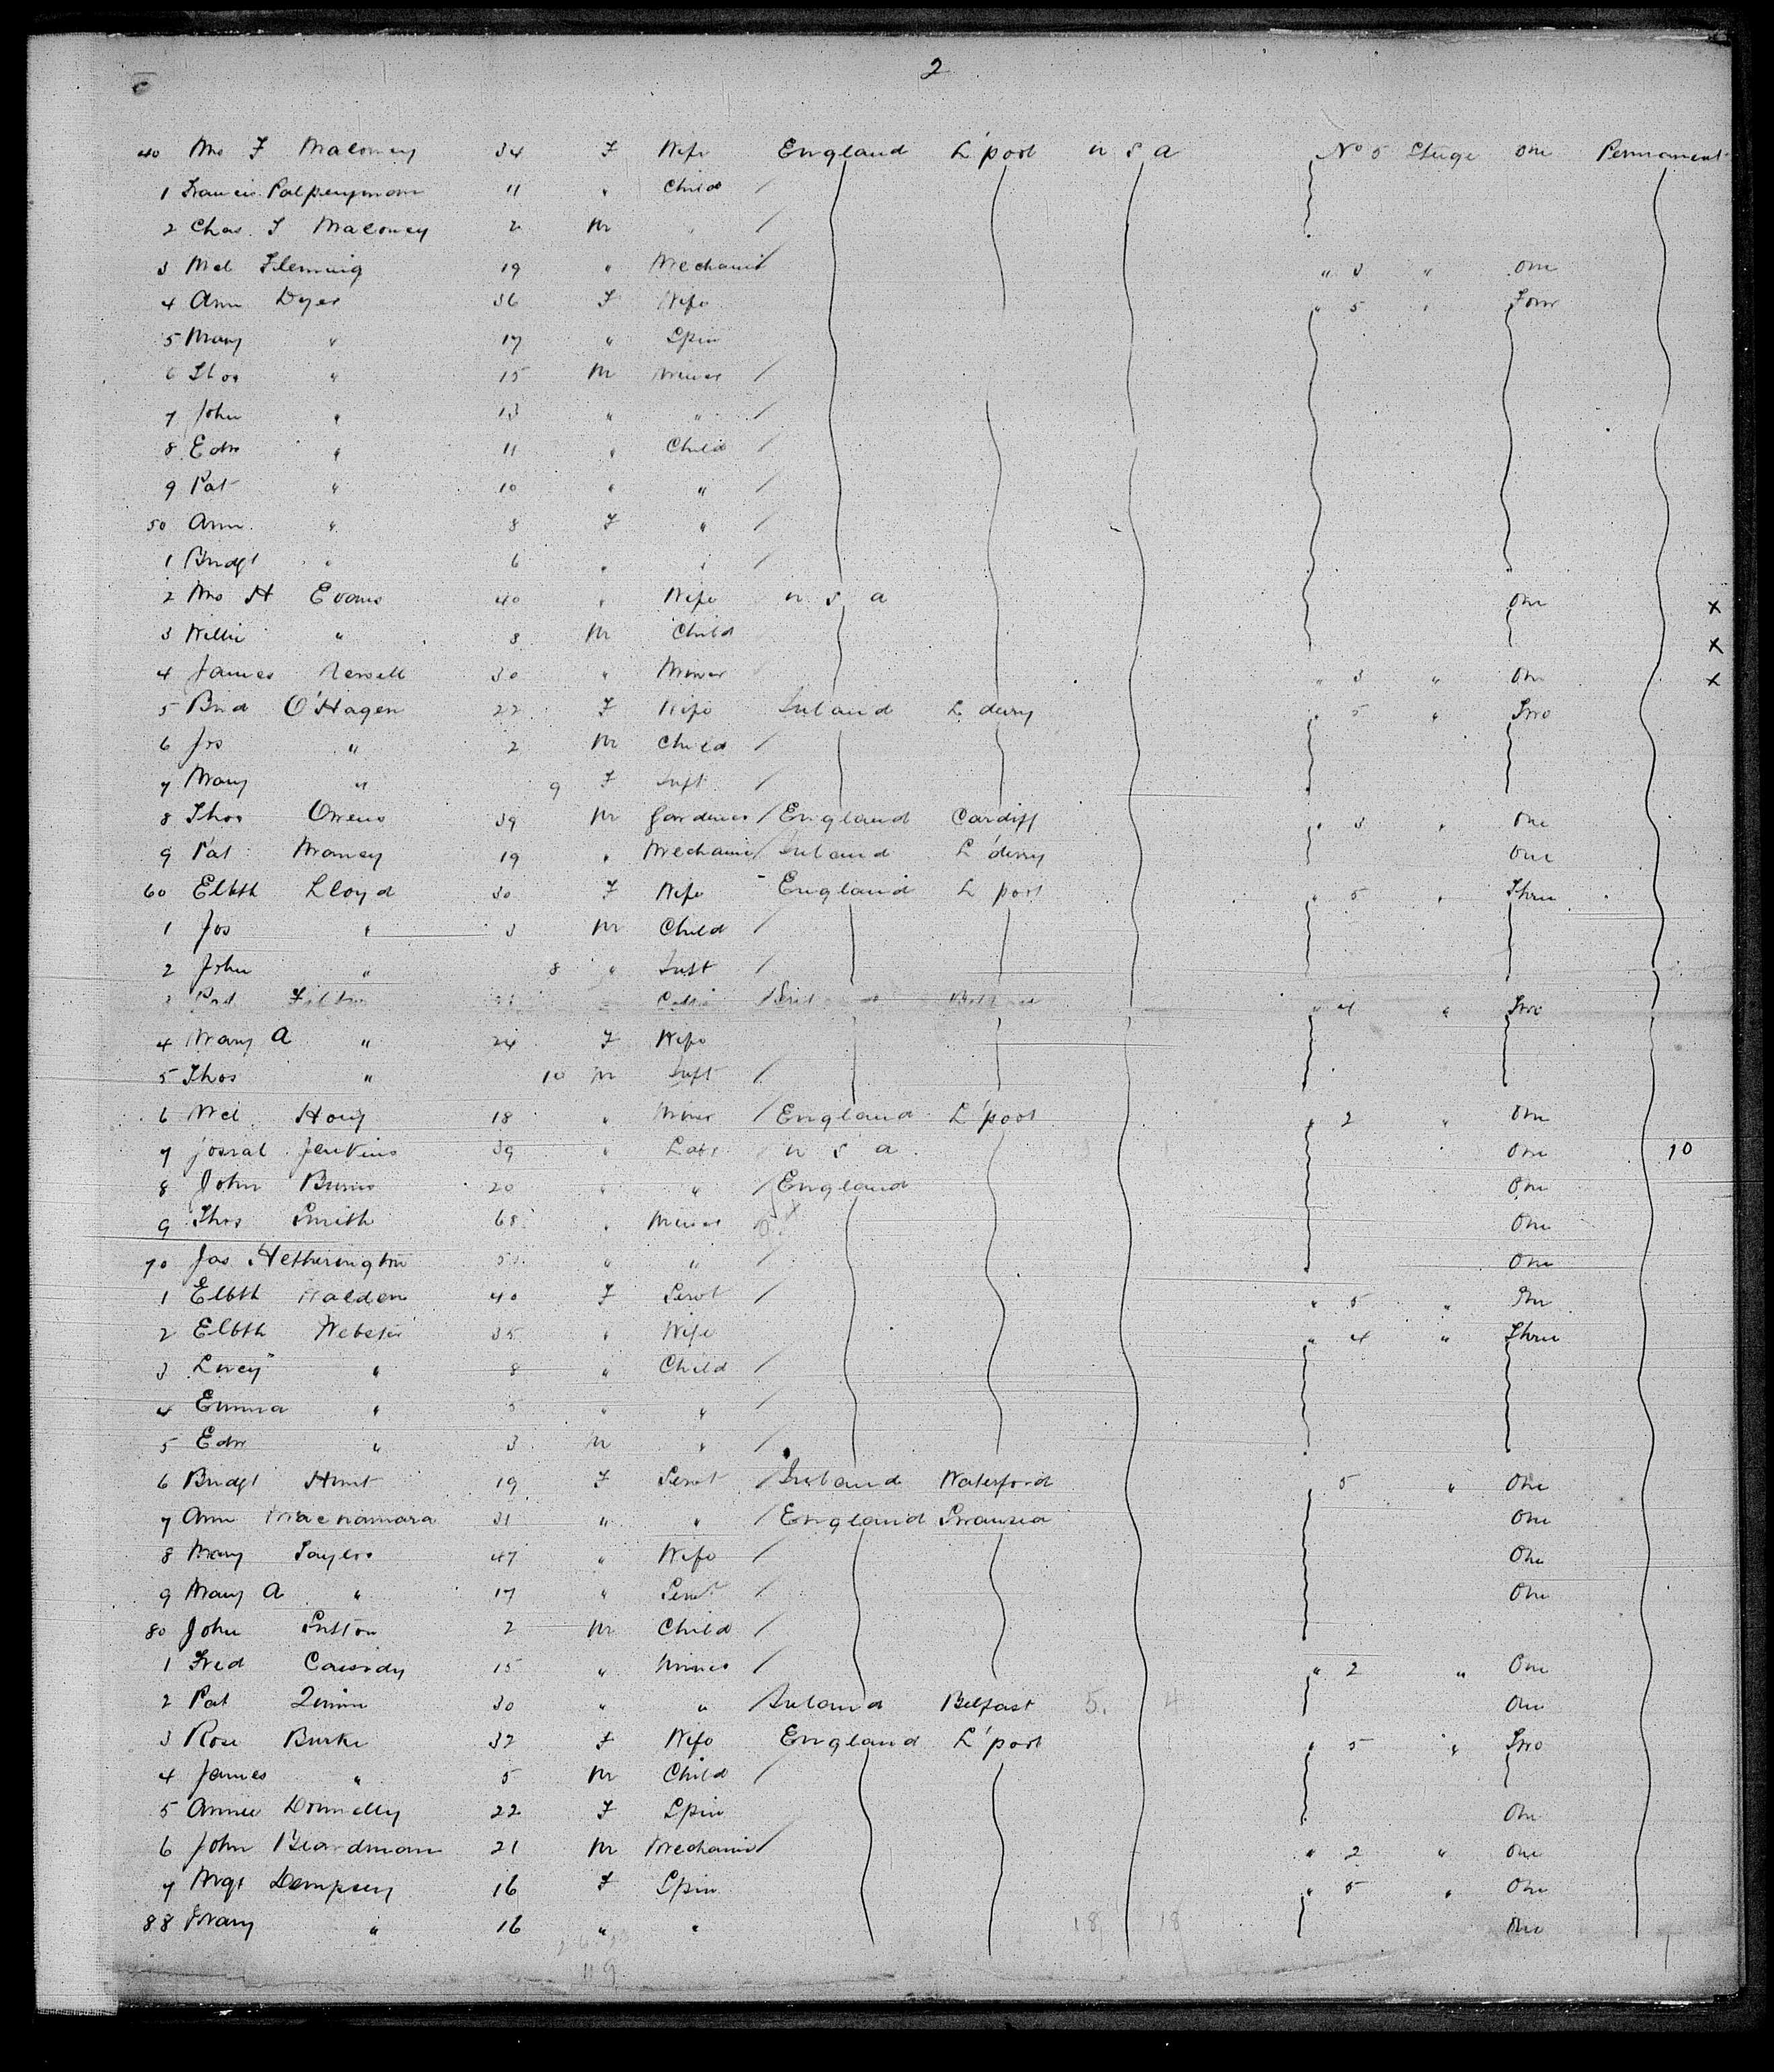 2
40 Mrs F Maloney 34 F Wife England L'pool U S A No 5 Stuge One Permanent
1 Francis 11 " Child /
2 Chas. F Maloney 2 M " /
3 Mcl Fleming 19 " Mechanic " 3 " One
4 Ann Dyer 36 F Wife " 5 " Four
5 Mary " 17 " Spin
6 Thos " 15 M Miner /
7 John " 13 " " /
8 Edw " 11 " Child /
9 Pat " 10 " " /
50 Ann " 8 F " /
1 Bridgt " 6 " " /
2 Mrs H Evans 40 " Wife U S A One x
3 Willie " 8 M Child x
4 James 30 " Miner " 3 " One x
5 Brid O'Hagen 22 F Wife Ireland L derry " 5 " Two
6 Jos " 2 M Child /
7 Mary " 9 F Inft /
8 Thos Owens 39 M Gardener / England Cardiff " 3 " One
9 Pat Maney 19 " Mechanic / Ireland L'derry One
60 Elbth Lloyd 30 F Wife England L pool " 5 " Three
1 Jos " 3 M Child /
2 John " 8 " Inft /
3 " 4 " Two
4 Mary A " 24 F Wife
5 Thos " 10 M Inft /
6 Mcl 18 " Miner / England L'pool " 2 " One
7 Jenkins 39 " Labr / U S A One 10
8 John Burns 20 " " / England One
9 Thos Smith 68 " Miner One
70 Jas Hetherington " " / One
1 Elbth Walden 40 F Servt / " 5 " One
2 Elbth Webster 35 " Wife " 4 " Three
3 Lucy " 8 " Child /
4 Emma " 5 " " /
5 Edw " 3 M " /
6 Bridgt Hunt 19 F Servt / Ireland Waterford 5 " One
7 Ann Macnamara 31 " " / England Swansea One
8 Mary Taylor 47 " Wife / One
9 Mary A " 17 " Servt / One
80 John Sutton 2 M Child /
1 Fred Cassidy 15 " Miner / " 2 " One
2 Pat Quinn 30 " " / Ireland Belfast 5. 4 One
3 Rose Burke 32 F Wife England L'pool " 5 " Two
4 James " 5 M Child /
5 Annie Donnelly 22 F Spin One
6 John Beardmam 21 M Mechanic / " 2 " One
7 Mgt Dempsey 16 F Spin " 5 " One
88 Mary " 16 " " 18 18 One